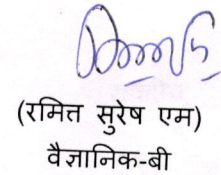 (रमित्त सुरेष एम)
वैज्ञानिक-बी